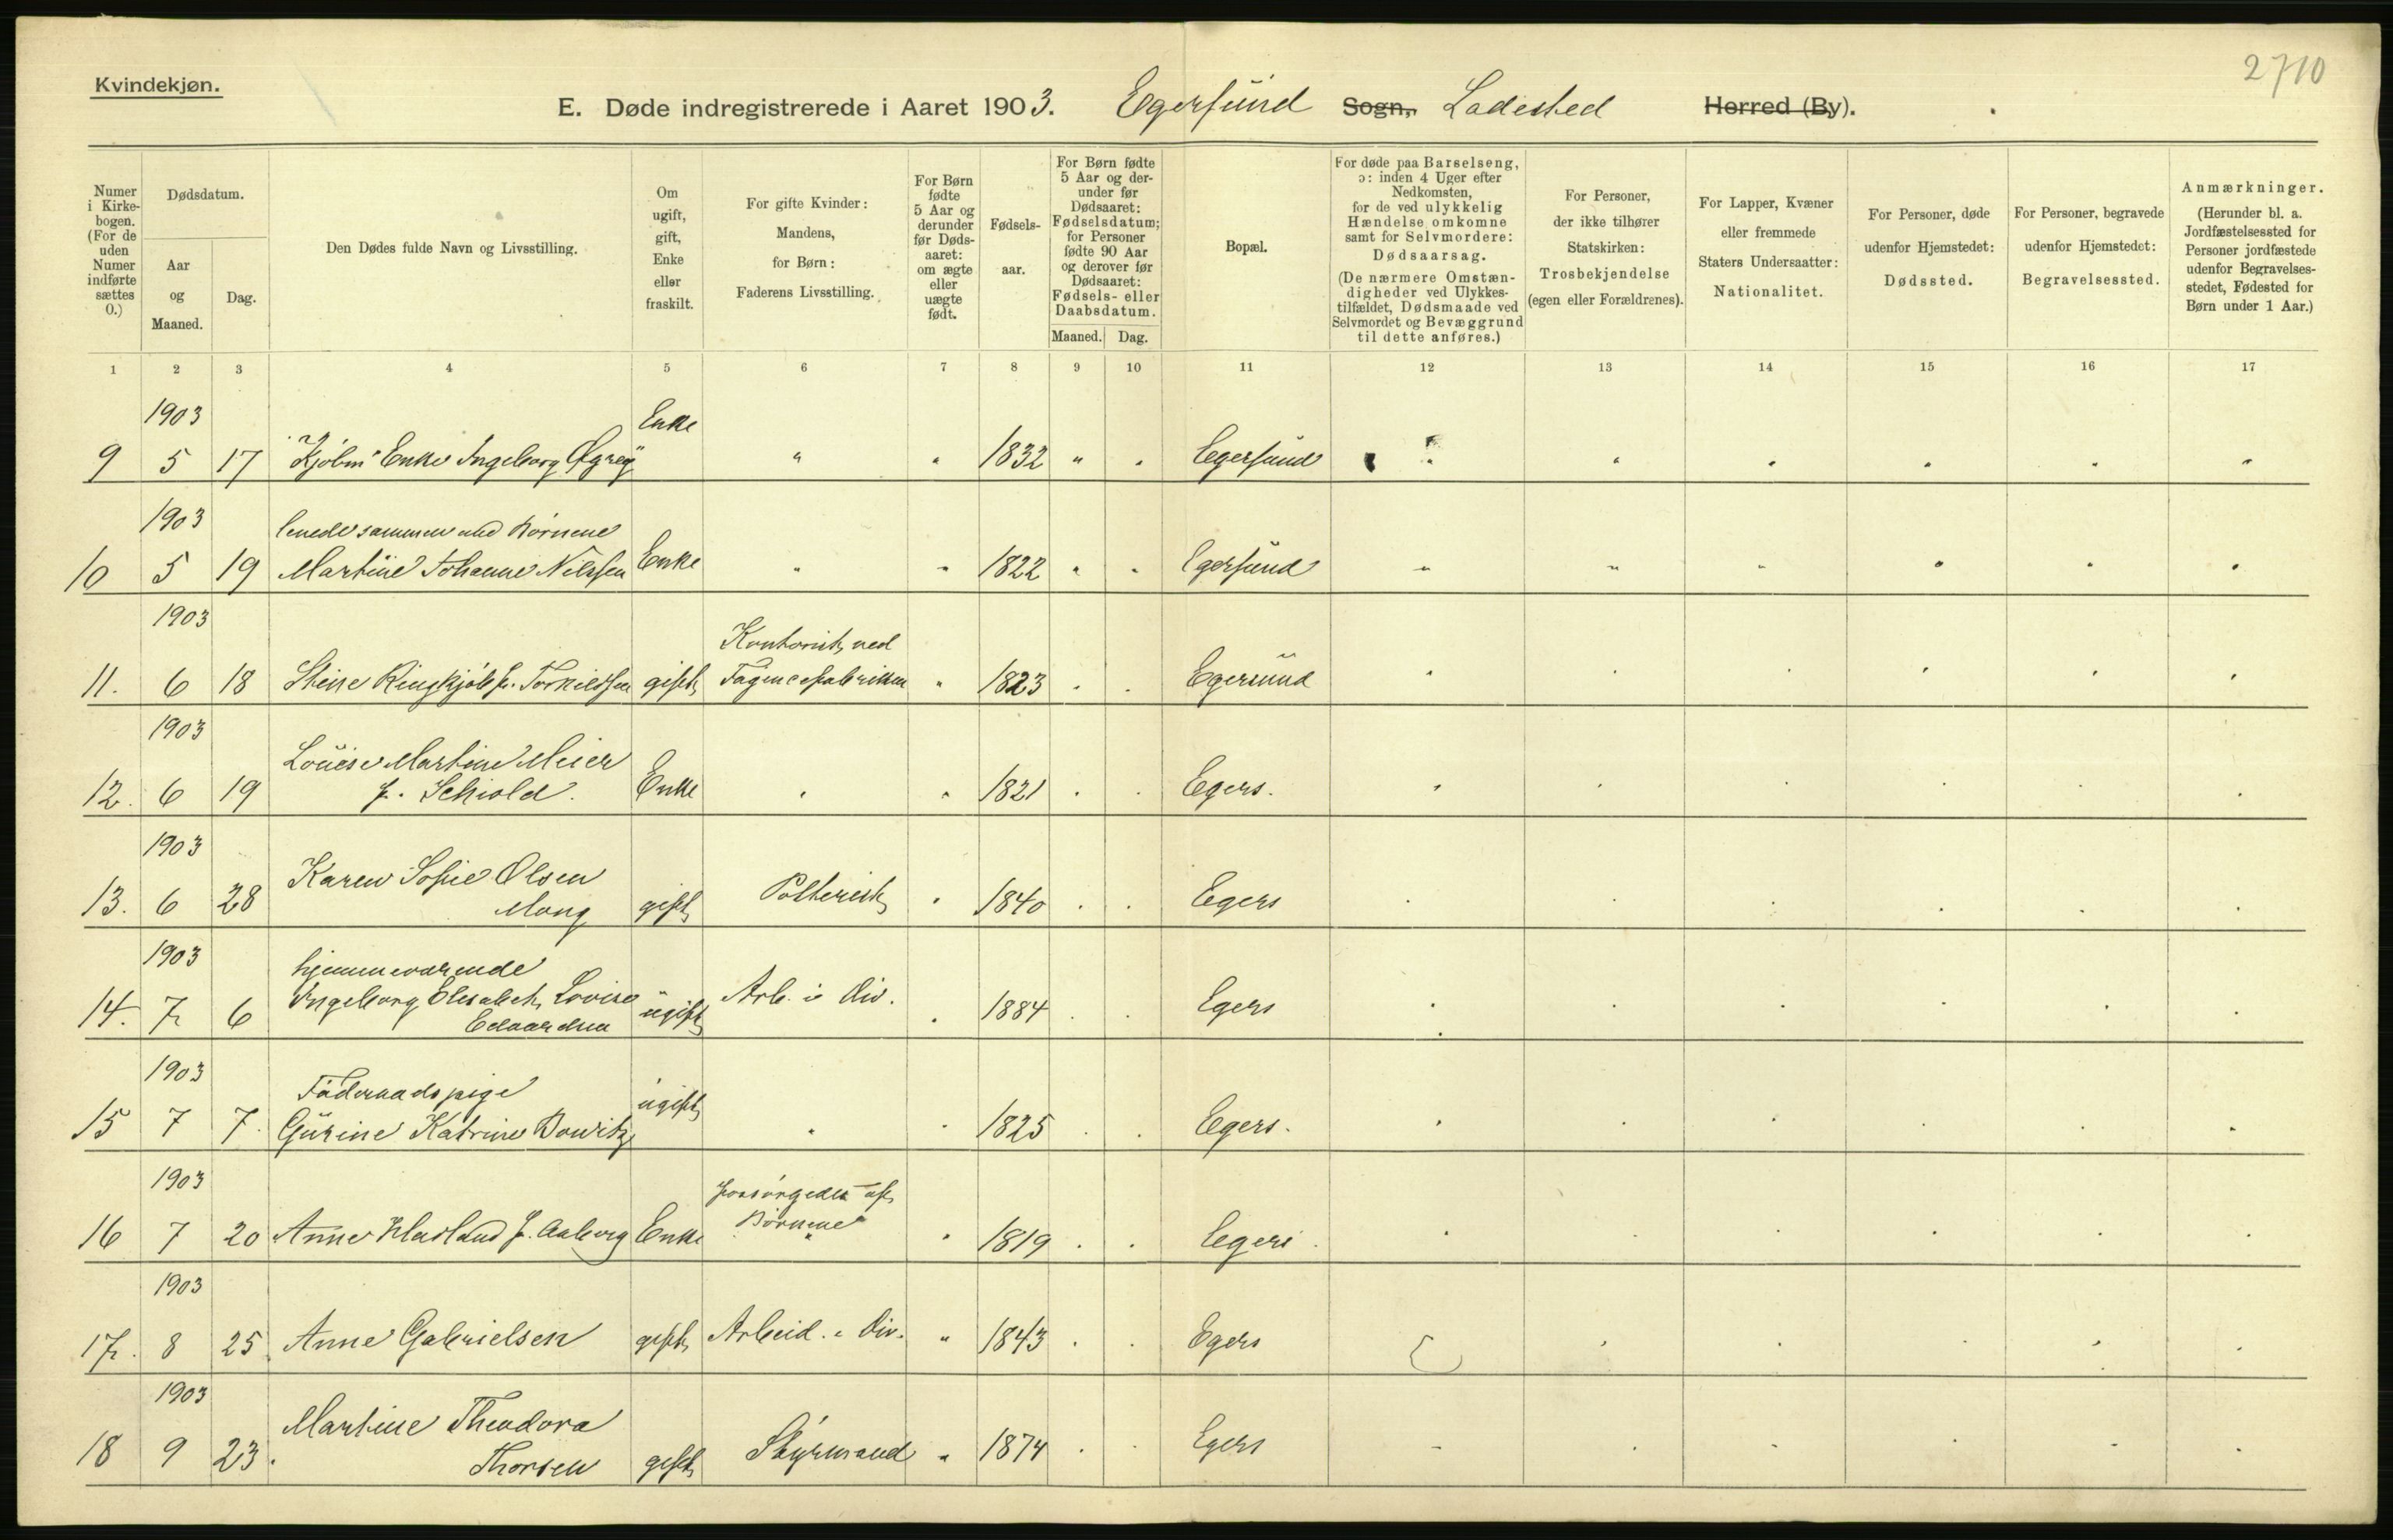 2710
Kvindekjøn.
E. Døde indregistrerede i Aaret 1903. Egersund Sogn, Ladested Herred (By).
Numer i Kirkebogen. (For de uden Numer indførte sættes 0.)
Dødsdatum.
Aar og Maaned.
Dag.
Den Dødes fulde Navn og Livsstilling.
Om ugift, gift, Enke eller fraskilt.
For gifte Kvinder: Mandens, for Børn: Faderens Livsstilling.
For Børn fødte 5 Aar og derunder før Dødsaaret: om ægte eller uægte født.
Fødselsaar.
For Børn fødte 5 Aar og derunder før Dødsaaret: Fødselsdatum; for Personer fødte 90 Aar og derover før Dødsaaret: Fødsels- eller Daabsdatum.
Maaned. Dag.
Bopæl.
For døde paa Barselseng, ɔ: inden 4 Uger efter Nedkomsten, for de ved ulykkelig Hændelse omkomne samt for Selvmordere: Dødsaarsag.
(De nærmere Omstændigheder ved Ulykkestilfældet, Dødsmaade ved Selvmordet og Bevæggrund til dette anføres.)
For Personer, der ikke tilhører Statskirken: Trosbekjendelse (egen eller Forældrenes).
For Lapper, Kvæner eller fremmede Staters Undersaatter: Nationalitet.
For Personer, døde udenfor Hjemstedet: Dødssted.
For Personer, begravede udenfor Hjemstedet: Begravelsessted.
Anmærkninger. (Herunder bl. a. Jordfæstelsessted for Personer jordfæstede udenfor Begravelsesstedet, Fødested for Børn under 1 Aar.)
1 2 3 4 5 6 7 8 9 10 11 12 13 14 15 16 17
1903 Enke
9 5 17 Kjøbm Enke Ingeborg Øgreÿ " " 1832 " " Egersund
1903 levede sammen med Børnene
10 5 19 Martine Johanne Nilssen Enke " " 1822 " " Egersund
1903 Kontorist ved
11. 6 18 Stine Ringkjøb f. Torkildsen gift Fagencefabrikken " 1823 Egersund
1903 Louise Martine Meier
12. 6 19 f. Schiold. Enke " " 1821 Egers.
1903 Karen Sofie Olsen
13. 6 28 Mong gift Potterist " 1840 Egers
1903 hjemmeværende
Ingeborg Elisabet Lovise Arb. i div.
14. 7 6 Edvardsen ugift 1884 Egers
1903 Føderaadspige ugift
15 7 7. Gurine Katrine Bowitz " 1825 Egers.
1903 forsørgedes af
Børnene
16 7 20 Anne Hadland f. Aaberg Enke " 1819 Egers.
1903
17. 8 25. Anne Gabrielsen gift Arbeid. i div. " 1843 Egers
1903 Martine Theodora
18 9 23. Thorsen gift Styrmand " 1874 Egers